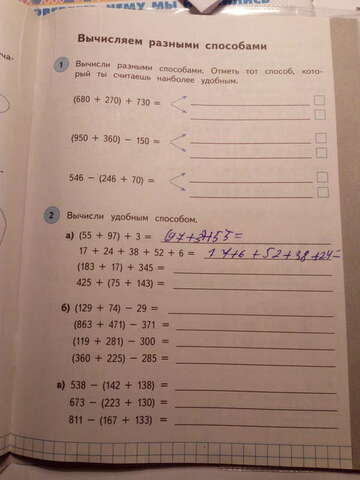 Вычисляем разными способами
1 Вычисли разными способами. Отметь тот способ, кото-
рый ты считаешь наиболее удобным.
(680 + 270) + 730 =
(950 + 360) − 150 =
546 − (246 + 70) =
2 Вычисли удобным способом.
а) (55 + 97) + 3 =
17 + 24 + 38 + 52 + 6 = 17+6+52+38+24=
(183 + 17) + 345 =
425 + (75 + 143) =
б) (129 + 74) − 29 =
(863 + 471) − 371 =
(119 + 281) − 300 =
(360 + 225) − 285 =
в) 538 − (142 + 138) =
673 − (223 + 130) =
811 − (167 + 133) =